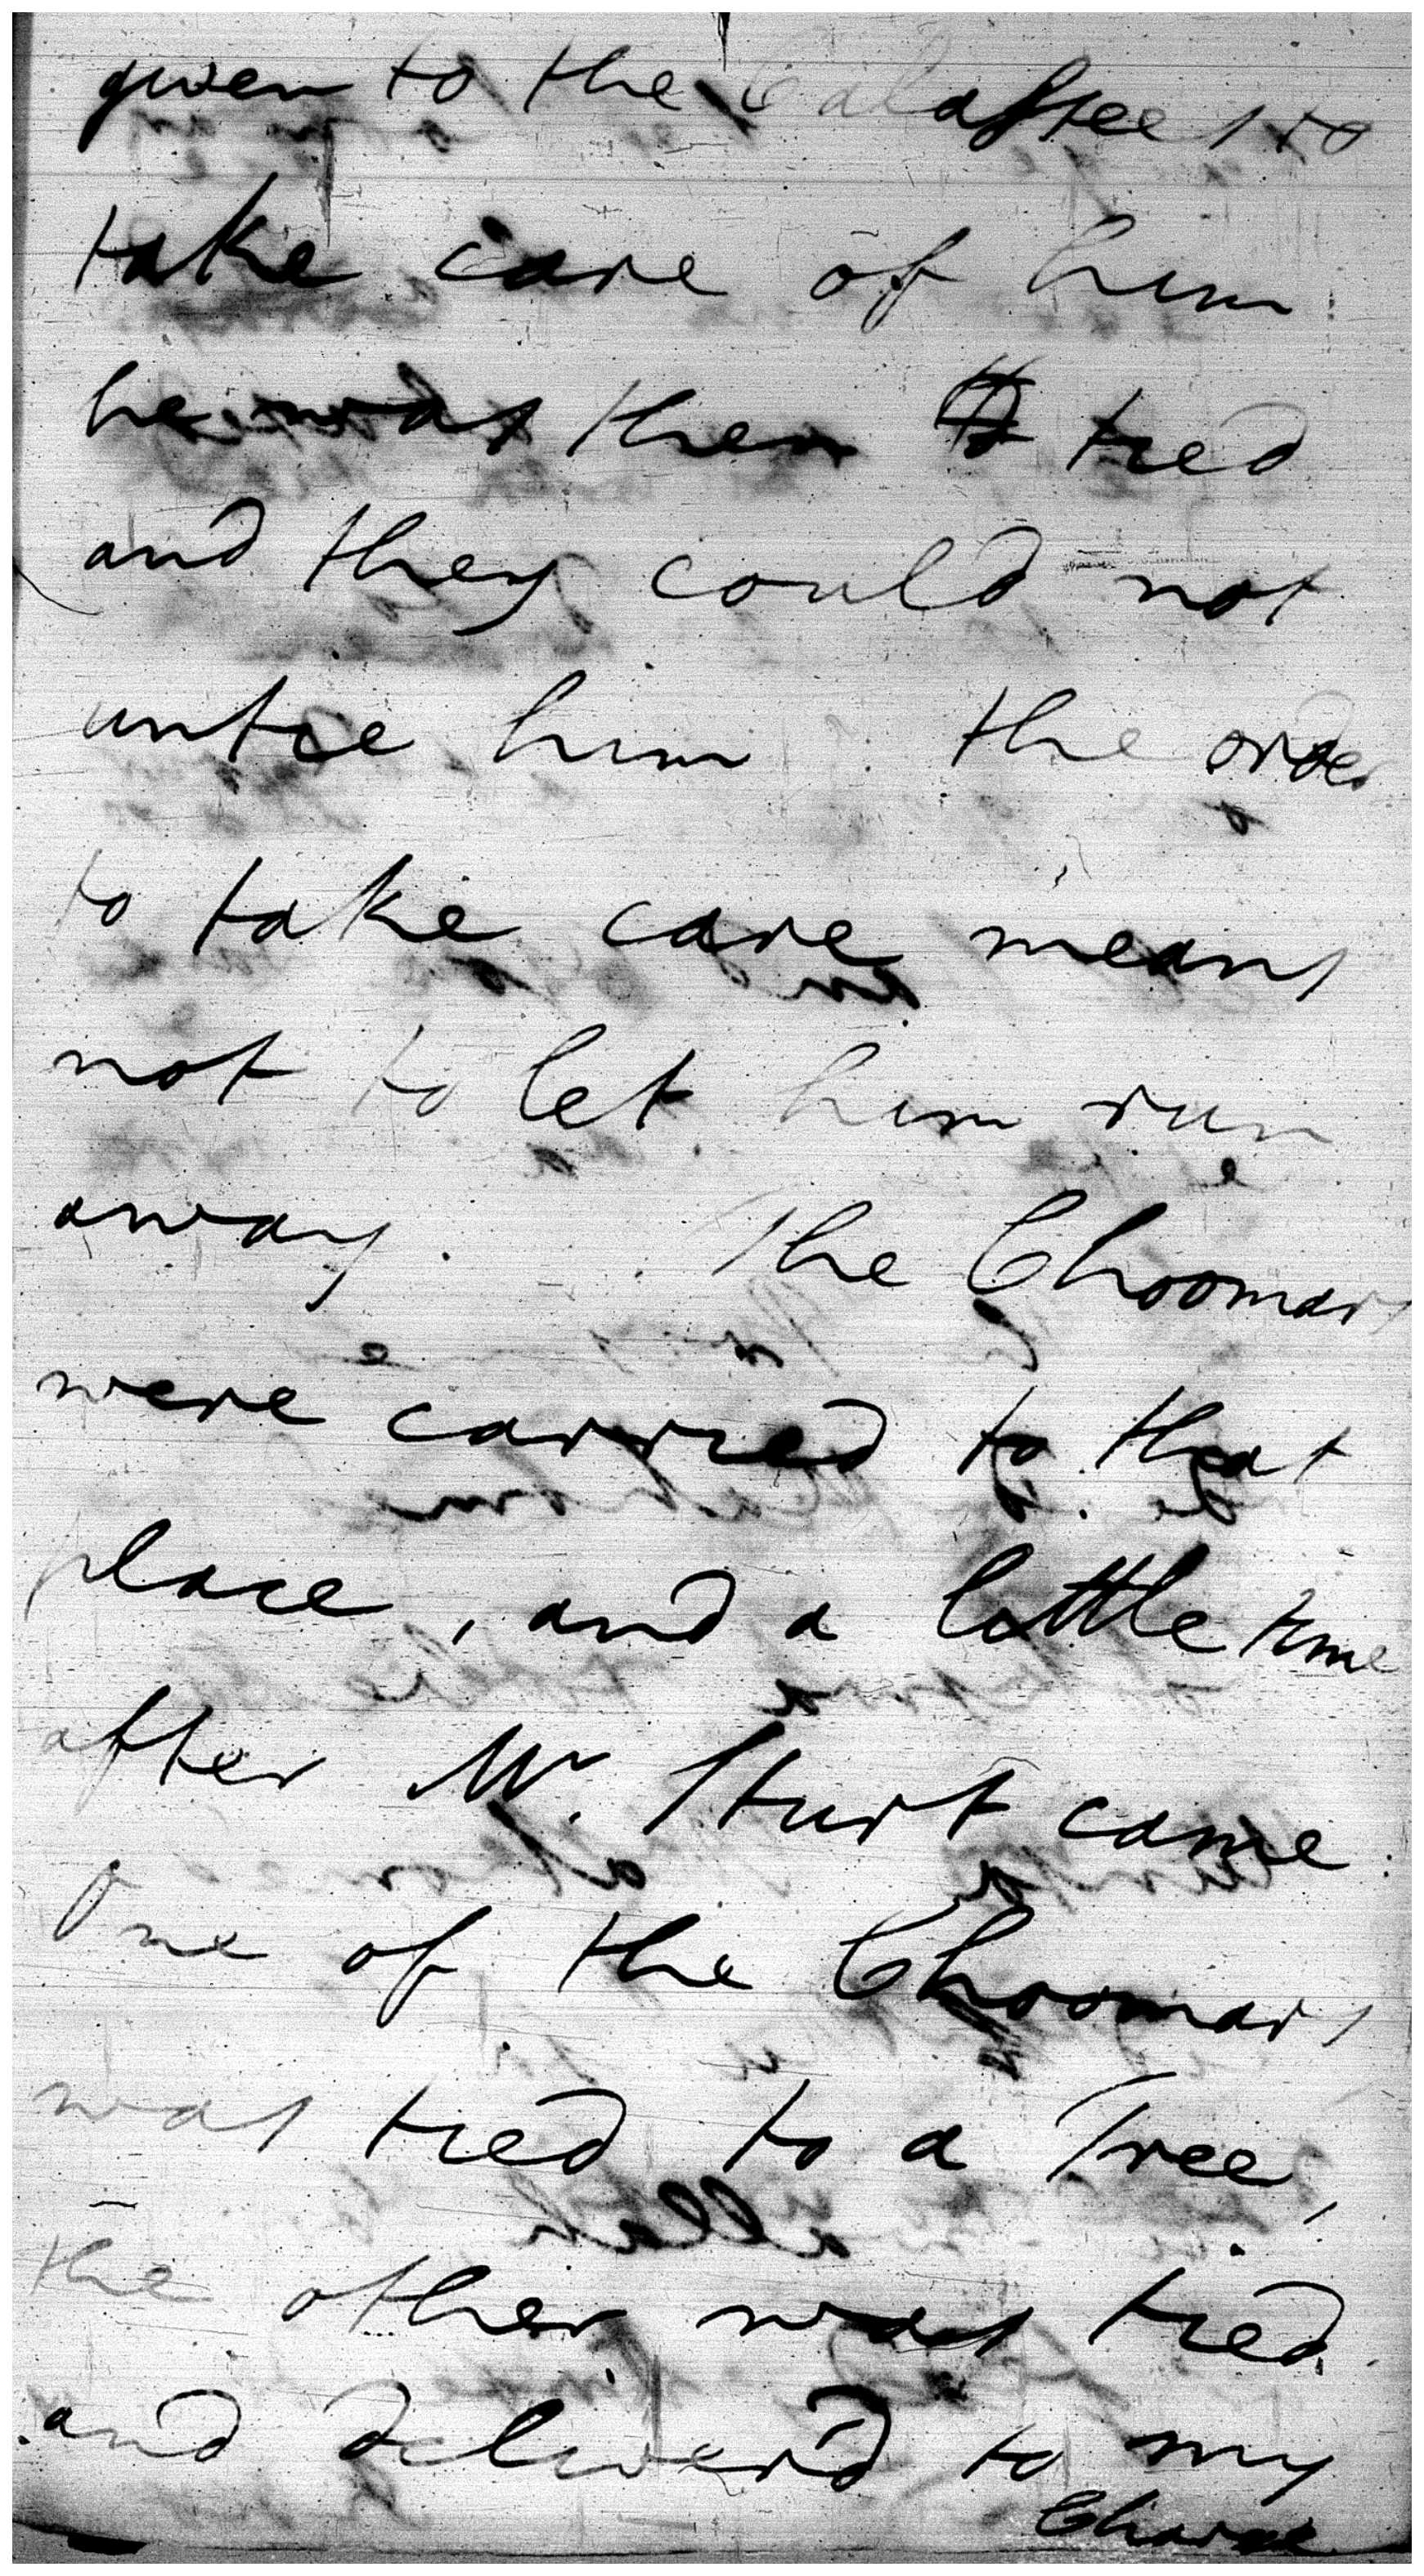 given to the Calassees to
take care of him
he was then tied
and they could not
untie him . the order
to take care means
not to let him run
away . The Choomars
were carried to that
place , and a little time
after Mr. Sturt came .
One of the Choomars
was tied to a Tree ,
the other was tied
and deliver'd to my
Charge